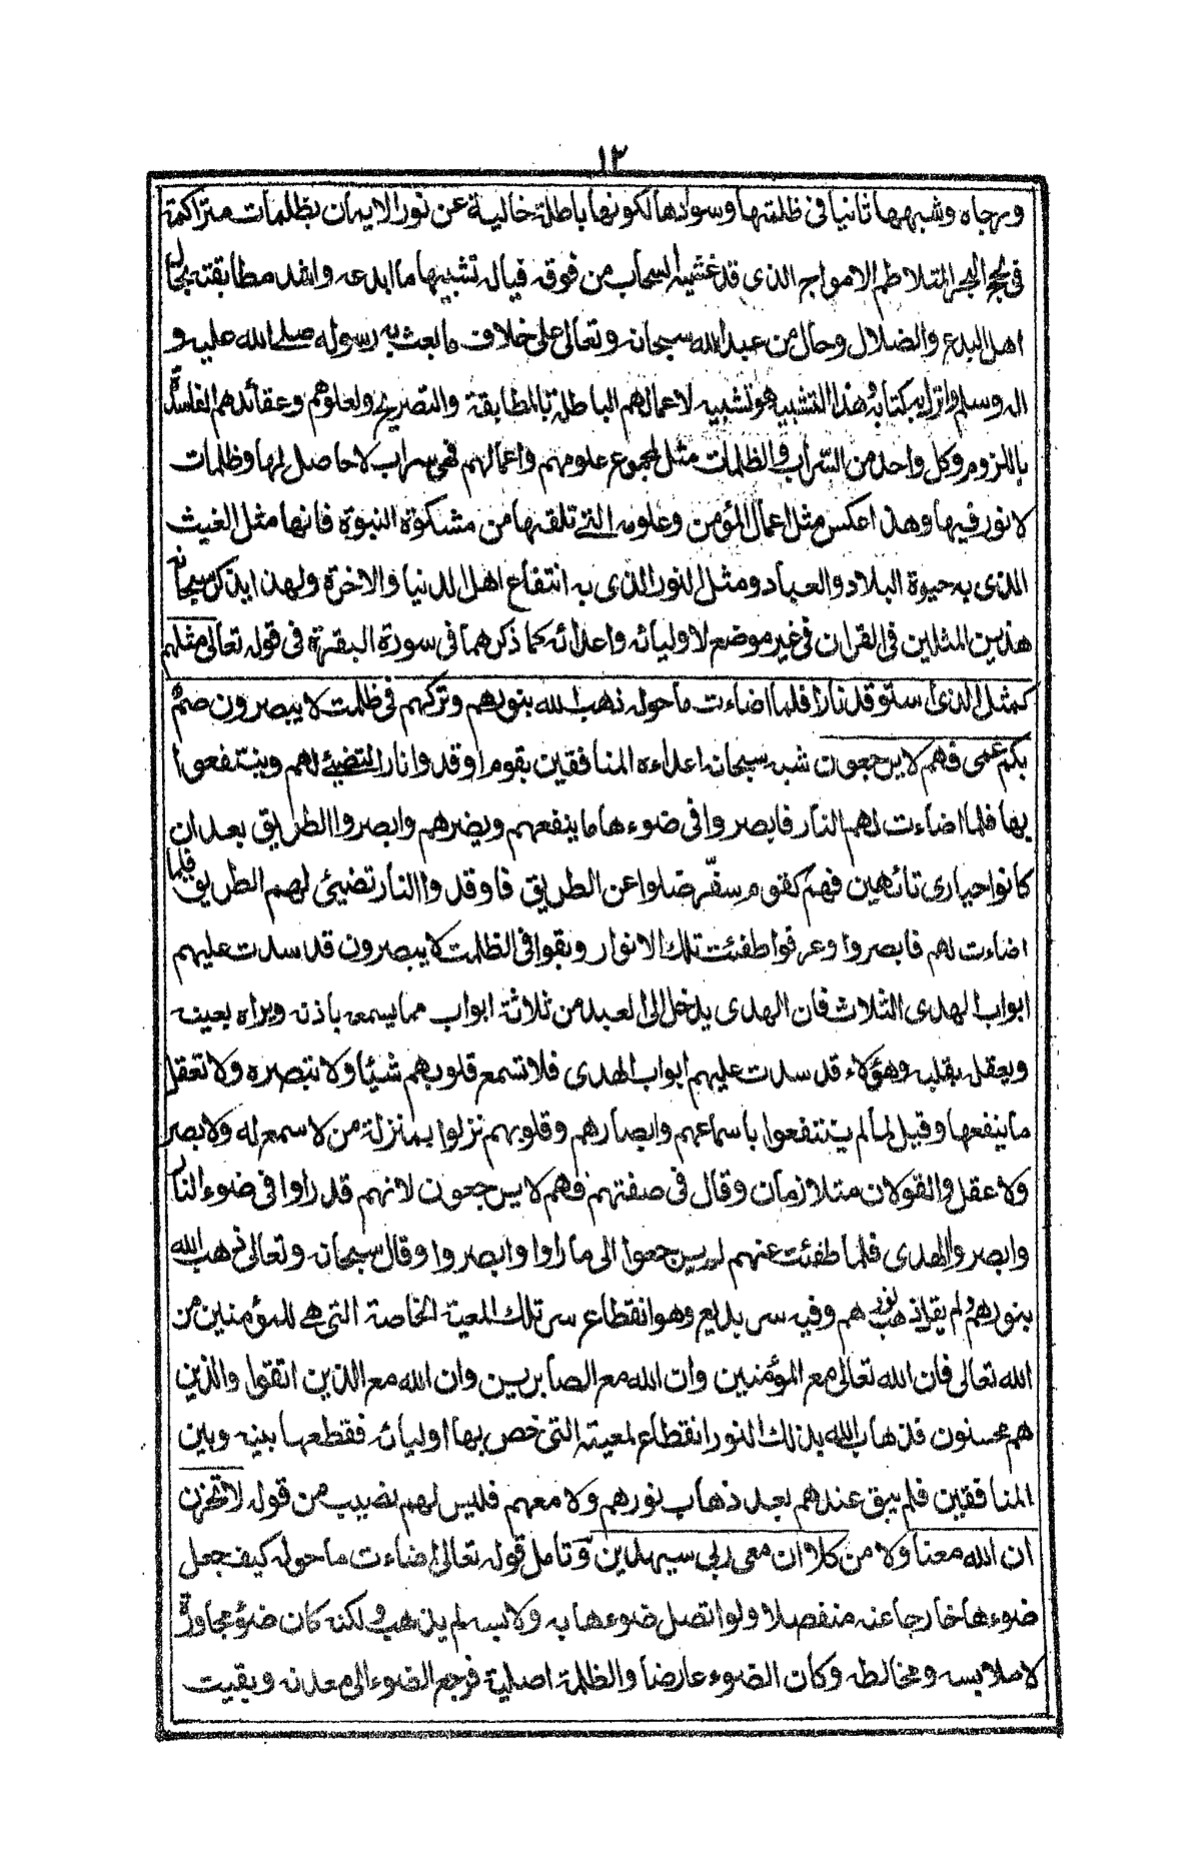 ١٣
ورجاه وشبهها ثانيا فى ظلمتها وسوادها لكونها باطلة خالية عن نور الايمان بظلمات متراكمة
فى لجج البحر المتلاطم الامواج الذى قد غشيه السحاب من فوقه فياله تشبيها ما ابدعه واشد مطابقته بحال
اهل البدع والضلال وحال من عبد الله سبحانه وتعالى على خلاف ما بعث به رسوله صلى الله عليه و
اله وسلم وانزل به كتابه وهذا التشبيه هو تشبيه لاعمالهم الباطلة بالمطابقة والتصريح ولعلومهم وعقائدهم الفاسدة
باللزوم وكل واحد من السراب والظلمات مثل لمجموع علومهم واعمالهم فهى سراب لا حاصل لها وظلمات
لا نور فيها وهذا عكس مثل اعمال المؤمن وعلومه التى تلقيها من مشكوة النبوة فانها مثل الغيث
الذى به حيوة البلاد والعباد ومثل النور الذى به انتفاع اهل الدنيا والاخرة ولهذا يذكر سبحانه
هذين المثلين فى القران فى غير موضع لاوليائه واعدائه كما ذكرهما فى سورة البقرة فى قوله تعالى مثلهم
كمثل الذى استوقد نارا فلما اضاءت ما حوله ذهب الله بنورهم وتركهم فى ظلمت لا يبصرون صم
بكم عمى فهم لا يرجعون شبه سبحانه اعداءه المنافقين بقوم اوقدوا نارا لتضيئ لهم وينتفعوا
بها فلما اضاءت لهم النار فابصروا فى ضوءها ما ينفعهم ويضرهم وابصروا الطريق بعد ان
كانوا حيارى تائهين فهم كقوم سفر ضلوا عن الطريق فاوقدوا النار تضيئى لهم الطريق فلما
اضاءت لهم فابصروا وعرفوا طفئت تلك الانوار وبقوا فى الظلمت لا يبصرون قد سدت عليهم
ابواب الهدى الثلاث فان الهدى يدخل الى العبد من ثلاثة ابواب مما يسمعه باذنه ويراه بعينه
ويعقل بقلبه وهؤلاء قد سدت عليهم ابواب الهدى فلا تسمع قلوبهم شيئا ولا تبصره ولا تعقل
ما ينفعها وقيل لما لم ينتفعوا باسماعهم وابصارهم وقلوبهم نزلوا بمنزلة من لا سمع له ولا بصر
ولا عقل والقولان متلازمان وقال فى صفتهم فهم لا يرجعون لانهم قد راوا فى ضوء النار
وابصروا الهدى فلما طفئت عنهم لم يرجعوا الى ما راوا وابصروا وقال سبحانه وتعالى ذهب الله
بنورهم ولم يقل ذهب نورهم وفيه سر بديع وهو انقطاع سر تلك المعية الخاصة التى هى للمؤمنين من
الله تعالى فان الله تعالى مع المؤمنين وان الله مع الصابرين وان الله مع الذين اتقوا والذين
هم محسنون فذهاب الله بذلك النور انقطاع لمعيته التى خص بها اوليائه فقطعها بينه وبين
المنافقين فلم يبق عندهم بعد ذهاب نورهم ولا معهم فليس لهم نصيب من قوله لا تحزن
ان الله معنا ولا من كلا ان معى ربى سيهدين وتامل قوله تعالى اضاءت ما حوله كيف جعل
ضوءها خارجا عنه منفصلا ولو اتصل ضوءها به ولابسه لم يذهب ولكنه كان ضوء مجاورة
لا ملابسه ومخالطه وكان الضوء عارضا والظلمة اصلية فرجع الضوء الى معدنه وبقيت